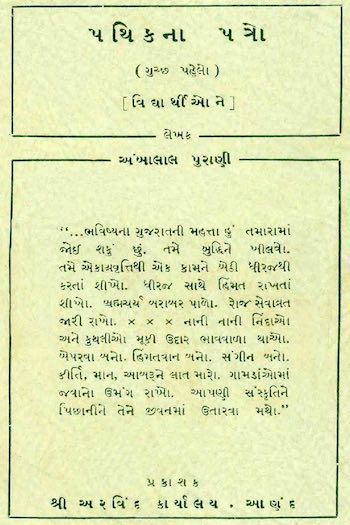 પથિકના પત્રો
( ગુચ્છ પહેલો )
[ વિદ્યાર્થીઓને ]
લેખક
અંબાલાલ પુરાણી
“...ભવિષ્યના ગુજરાતની મહત્તા હું તમારામાં
જોઈ શકું છું. તમે બુદ્ધિને ખીલવો.
તમે એકાગ્રવૃત્તિથી એક કામને એકી ધીરજથી
કરતાં શીખો. ધીરજ સાથે હિંમત રાખતાં
શીખો. બ્રહ્મચર્ય બરાબર પાળો. રોજ સેવાવ્રત
જારી રાખો. × × × નાની નાની નિંદાઓ
અને કુથલીઓ મૂકી ઉદાર ભાવવાળા થાઓ.
બેપરવા બનો. હિંમતવાન બનો. સંગીન બનો.
કીર્તિ, માન, આબરૂને લાત મારો. ગામડાંઓમાં
જવાનો ઉમંગ રાખો. આપણી સંસ્કૃતિને
પિછાનીને તેને જીવનમાં ઉતારવા મથો.”
પ્રકાશક
શ્રી અરવિંદ કાર્યાલય · આણંદ